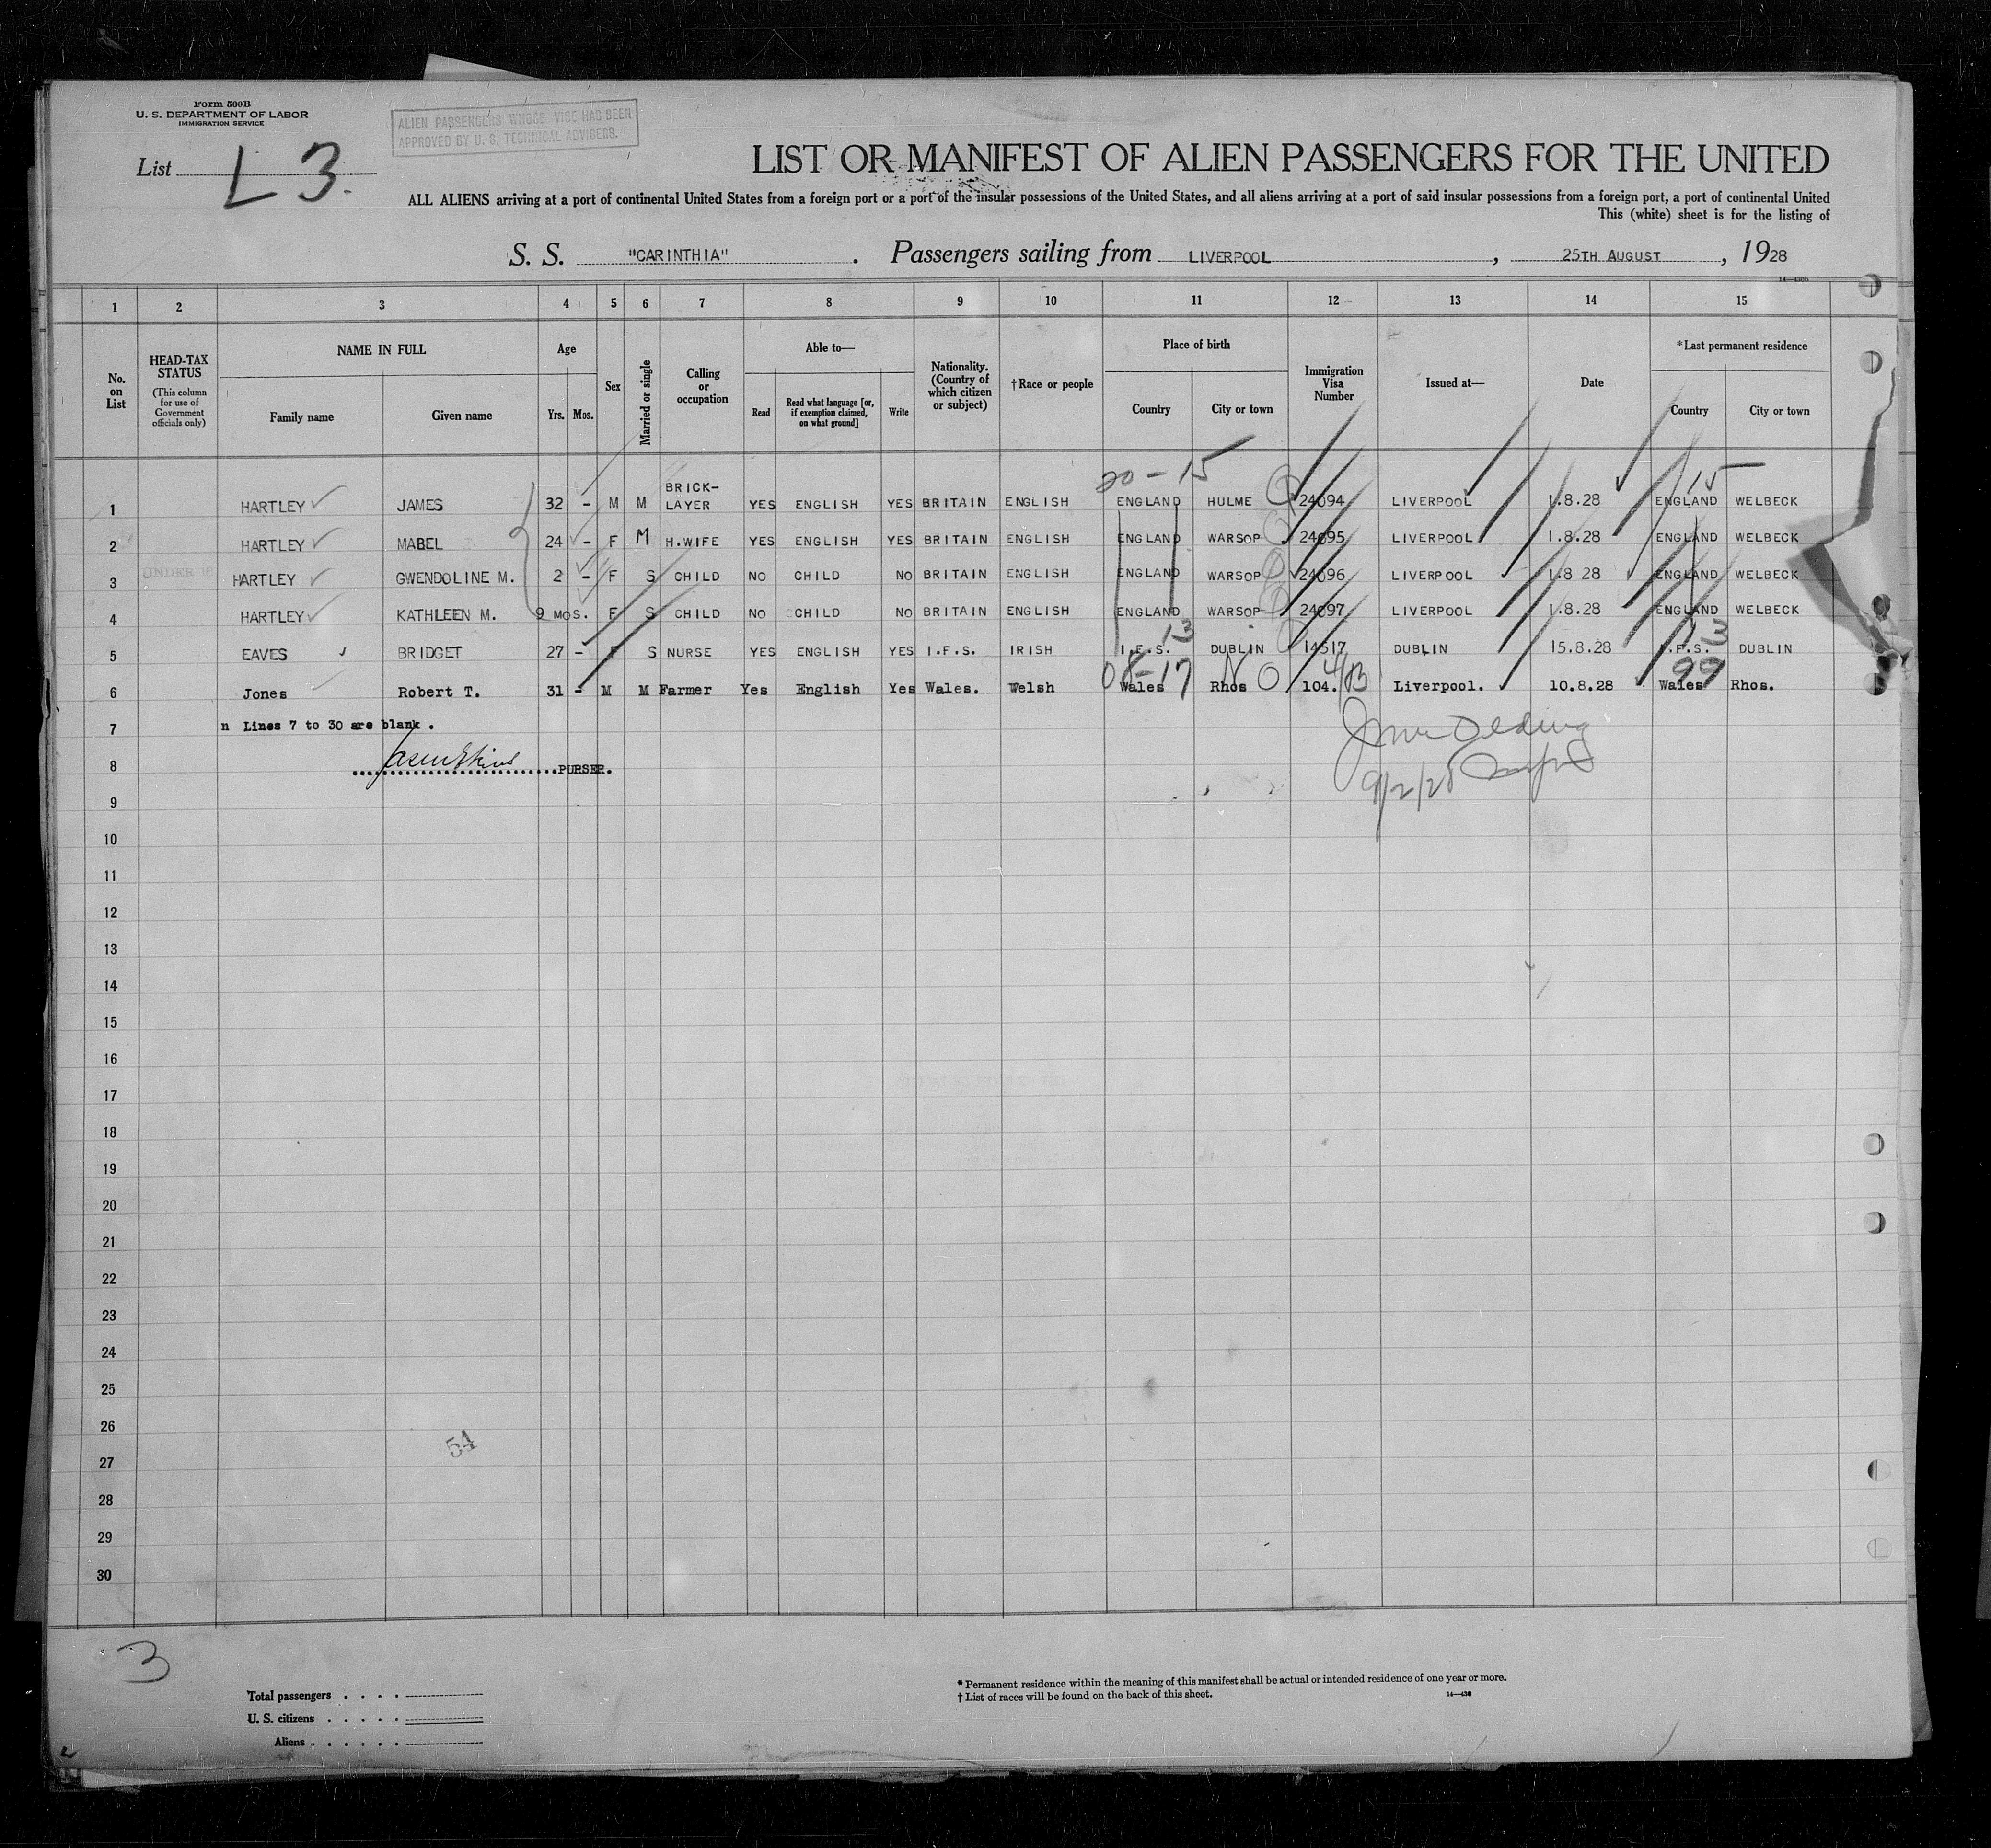 Form 500B
U. S. DEPARTMENT OF LABOR
IMMIGRATION SERVICE
ALIEN PASSENGERS WHOSE VISE HAS BEEN
APPROVED BY U. S. TECHNICAL ADVISERS.
List L 3.
LIST OR MANIFEST OF ALIEN PASSENGERS FOR THE UNITED
ALL ALIENS arriving at a port of continental United States from a foreign port or a port of the insular possessions of the United States, and all aliens arriving at a port of said insular possessions from a foreign port, a port of continental United
This (white) sheet is for the listing of
S. S. "CARINTHIA" . Passengers sailing from LIVERPOOL , 25TH AUGUST , 1928
1 2 3 4 5 6 7 8 9 10 11 12 13 14 15
No. on List
HEAD-TAX STATUS (This column for use of Government officials only)
NAME IN FULL
Family name Given name
Age
Yrs. Mos.
Sex
Married or single
Calling or occupation
Able to—
Read Read what language [or, if exemption claimed, on what ground] Write
Nationality. (Country of which citizen or subject)
†Race or people
Place of birth
Country City or town
Immigration Visa Number
Issued at—
Date
*Last permanent residence
Country City or town
20-15 15
1 HARTLEY JAMES 32 - M M BRICK-LAYER YES ENGLISH YES BRITAIN ENGLISH ENGLAND HULME 24094 LIVERPOOL 1.8.28 ENGLAND WELBECK
2 HARTLEY MABEL 24 - F M H.WIFE YES ENGLISH YES BRITAIN ENGLISH ENGLAND WARSOP 24095 LIVERPOOL 1.8.28 ENGLAND WELBECK
3 UNDER 16 HARTLEY GWENDOLINE M. 2 - F S CHILD NO CHILD NO BRITAIN ENGLISH ENGLAND WARSOP 24096 LIVERPOOL 1.8 28 ENGLAND WELBECK
4 HARTLEY KATHLEEN M. 9 MOS. F S CHILD NO CHILD NO BRITAIN ENGLISH ENGLAND WARSOP 24097 LIVERPOOL 1.8.28 ENGLAND WELBECK
13 13
5 EAVES BRIDGET 27 - F S NURSE YES ENGLISH YES I.F.S. IRISH I.F.S. DUBLIN 14517 DUBLIN 15.8.28 I.F.S. DUBLIN
08-17 NO 4/13 99
6 Jones Robert T. 31 - M M Farmer Yes English Yes Wales. Welsh Wales Rhos 104. Liverpool. 10.8.28 Wales Rhos.
7 n Lines 7 to 30 are blank.
8 PURSER.
9/2/28
9
10
11
12
13
14
15
16
17
18
19
20
21
22
23
24
25
26
54
27
28
29
30
3
Total passengers
U. S. citizens
Aliens
* Permanent residence within the meaning of this manifest shall be actual or intended residence of one year or more.
† List of races will be found on the back of this sheet.